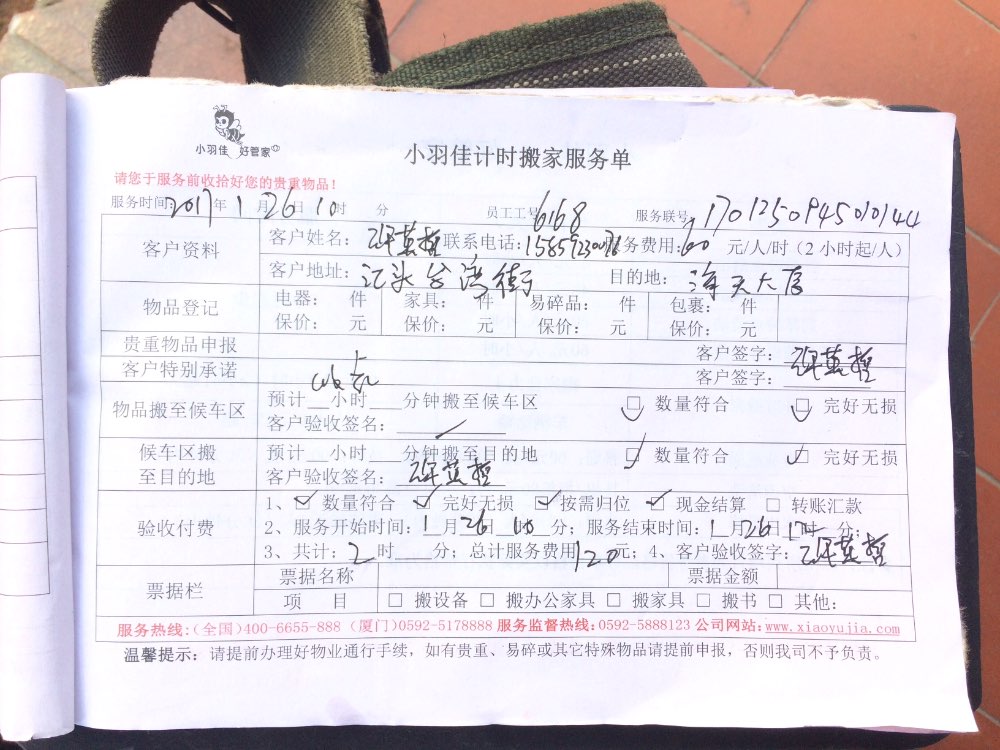 小羽佳 好管家
小羽佳计时搬家服务单
请您于服务前收拾好您的贵重物品！
服务时间：2017年1月26日10时 分 员工工号6168 服务联号：170125094501014
客户资料 客户姓名： 联系电话： 服务费用：60元/人/时（2小时起/人）
客户地址：江头台湾街 目的地：海天大厦
物品登记 电器： 件 家具： 件 易碎品： 件 包裹： 件
保价： 元 保价： 元 保价： 元 保价： 元
贵重物品申报 客户签字：
客户特别承诺 客户签字：
物品搬至候车区 预计__小时___分钟搬至候车区 数量符合 完好无损
客户验收签名：
候车区搬至目的地 预计__小时___分钟搬至目的地 数量符合 完好无损
客户验收签名：
验收付费 1、☑数量符合 ☑完好无损 ☑按需归位 ☑现金结算 □转账汇款
2、服务开始时间：1月26日 时 分；服务结束时间：1月26日 时 分；
3、共计：2时___分；总计服务费用120元；4、客户验收签字：
票据栏 票据名称 票据金额
项 目 □ 搬设备 □ 搬办公家具 □ 搬家具 □ 搬书 □ 其他：
服务热线：（全国）400-6655-888（厦门）0592-5178888 服务监督热线：0592-5888123 公司网站：www.xiaoyujia.com
温馨提示：请提前办理好物业通行手续，如有贵重、易碎或其它特殊物品请提前申报，否则我司不予负责。